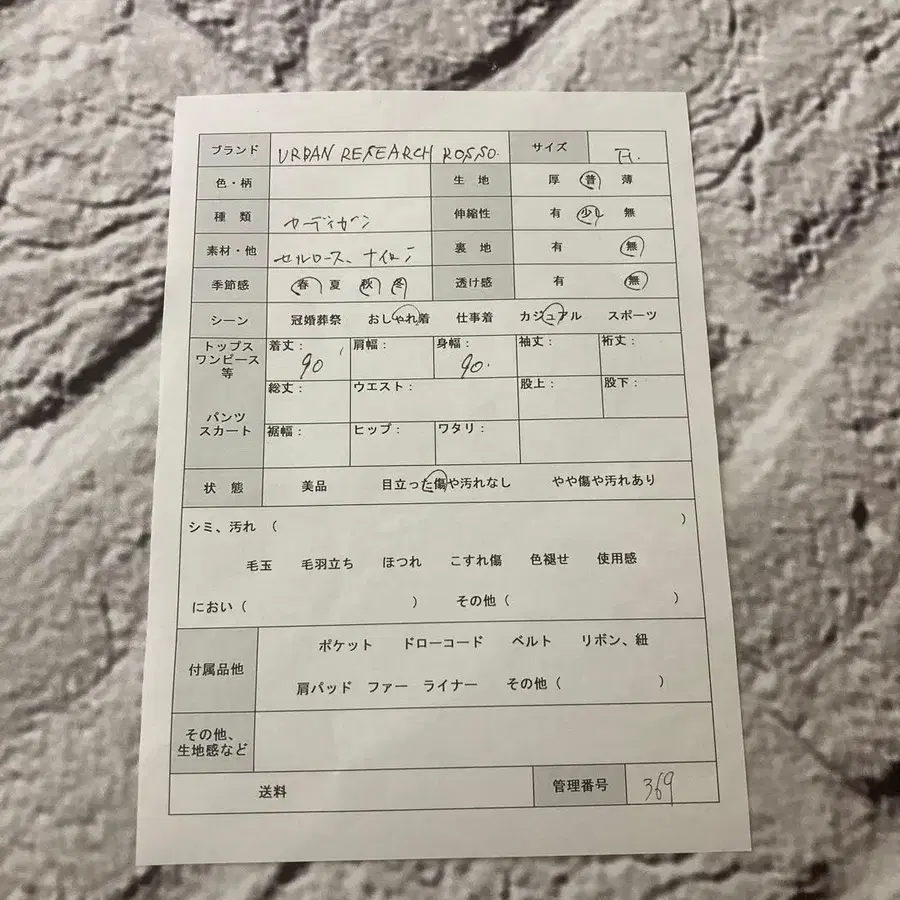 ブランド URBAN RESEARCH ROSSO. サイズ F.
色・柄 生地 厚 普 薄
種類 カーディガン 伸縮性 有 少 無
素材・他 セルロース、ナイロン 裏地 有 無
季節感 春 夏 秋 冬 透け感 有 無
シーン 冠婚葬祭 おしゃれ着 仕事着 カジュアル スポーツ
トップス ワンピース 等 着丈： 90 肩幅： 身幅： 90. 袖丈： 裄丈：
パンツ スカート 総丈： ウエスト： 股上： 股下：
裾幅： ヒップ： ワタリ：
状態 美品 目立った傷や汚れなし やや傷や汚れあり
シミ、汚れ （ ）
毛玉 毛羽立ち ほつれ こすれ傷 色褪せ 使用感
におい（ ） その他（ ）
付属品他 ポケット ドローコード ベルト リボン、紐
肩パッド ファー ライナー その他（ ）
その他、
生地感など
送料 管理番号 369